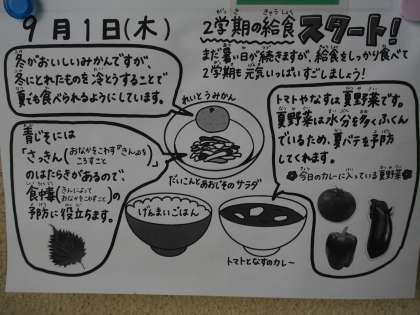 9月1日(木)
2学期の給食 スタート!
まだ暑い日が続きますが、給食をしっかり食べて
2学期も元気いっぱいすごしましょう!
冬がおいしいみかんですが、
冬にとれたものを冷とうすることで
夏でも食べられるようにしています。
れいとうみかん
トマトやなすは夏野菜です。
夏野菜は水分を多くふくん
でいるため、夏バテを予防
してくれます。
今日のカレーに入っている夏野菜
青じそには
「さっきん(おなかをこわす"きん"をころすこと)
のはたらきがあるので、
食中毒(きんによっておなかをこわすこと)の
予防に役立ちます。
だいこんとあおじそのサラダ
げんまいごはん
トマトとなすのカレー